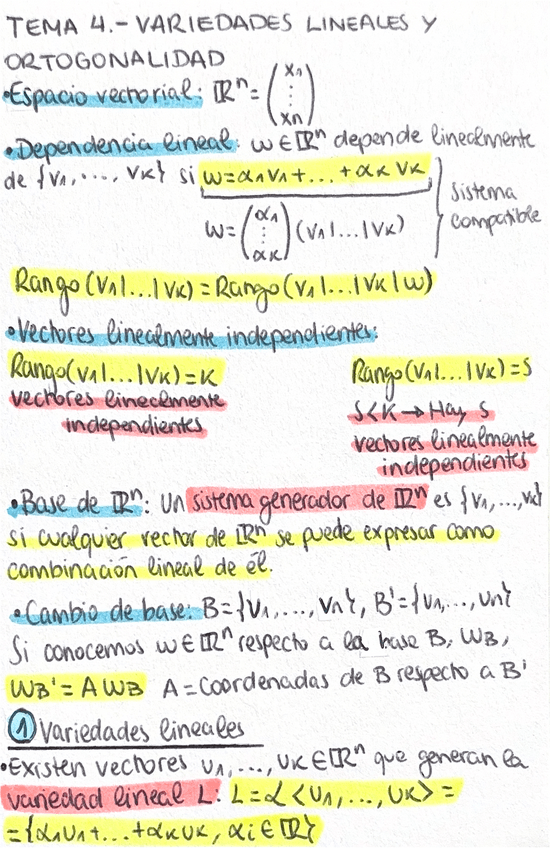 TEMA 4.- VARIEDADES LINEALES Y
ORTOGONALIDAD
•Espacio vectorial: ℝⁿ = (x₁ ⋮ xn)
•Dependencia lineal: w∈ℝⁿ depende linealmente
de {v₁, ..., vk} si w=α₁v₁+...+αk vk
w=(α₁ ⋮ αk)(v₁|...|vk)
sistema
compatible
Rango(v₁|...|vk)=Rango(v₁|...|vk|w)
•Vectores linealmente independientes:
Rango(v₁|...|vk)=k
vectores linealmente
independientes
Rango(v₁|...|vk)=s
s<k → Hay s
vectores linealmente
independientes
•Base de ℝⁿ: Un sistema generador de ℝⁿ es {v₁,...,vk}
si cualquier vector de ℝⁿ se puede expresar como
combinación lineal de él.
•Cambio de base: B={v₁,..., vn}, B'={u₁,..., un}
Si conocemos w∈ℝⁿ respecto a la base B, wB,
wB'=A wB A=coordenadas de B respecto a B'
① Variedades lineales
•Existen vectores u₁,..., uk∈ℝⁿ que generan la
variedad lineal L: L=𝓛<u₁,..., uk>=
={α₁u₁+...+αkuk, αi∈ℝ}